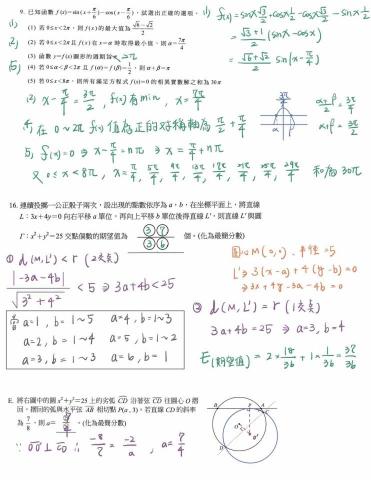 9. 已知函數 f(x)=sin(x+π/6)-cos(x-π/6)，試選出正確的選項。
(1) 若 0≤x<2π，則 f(x) 的最大值為 (√6-√2)/2
(2) 若 0≤x<2π 且 f(x) 在 x=α 時取得最小值，則 α=7π/4
(3) 函數 y=f(x) 圖形的週期為 2π
(4) 若 0≤α<β<2π 且 f(α)=f(β)=1/2，則 α+β=π
(5) 若 0≤x<8π，則所有滿足方程式 f(x)=0 的相異實數解之和為 30π
(1) f(x)=sinx·√3/2+cosx·1/2-cosx·√3/2-sinx·1/2
=(√3-1)/2(sinx-cosx)
sin(x-π/4)
(2) x-π/4=3π/2, f(x) 有 min, x=7π/4
(4) 在 0~2π f(x) 值為正的對稱軸為 π/2+π/4
(α+β)/2=3π/4
α+β=3π/2
(5) f(x)=0 ⇒ x-π/4=nπ ⇒ x=π/4+nπ
又 0≤x<8π, x=π/4, 5π/4, 9π/4, 13π/4, 17π/4, 21π/4, 25π/4, 29π/4 和為 30π
16. 連續投擲一公正骰子兩次，設出現的點數依序為 a、b，在坐標平面上，將直線
L：3x+4y=0 向右平移 a 單位，再向上平移 b 單位後得直線 L'，則直線 L' 與圓
Γ：x²+y²=25 交點個數的期望值為 37/36 個。(化為最簡分數)
① d(M,L')<r (2交點)
|-3a-4b|/√(3²+4²)<5 ⇒ 3a+4b<25
a=1, b=1~5 a=4, b=1~3
a=2, b=1~4 a=5, b=1~2
a=3, b=1~3 a=6, b=1
圓心M(0,0), 半徑=5
L'⇒3(x-a)+4(y-b)=0
⇒3x+4y-3a-4b=0
② d(M,L')=r (1交點)
3a+4b=25 ⇒ a=3, b=4
E(期望值)=2×18/36+1×1/36=37/36
E. 將右圖中的圓 x²+y²=25 上的劣弧 CD 沿著弦 CD 往圓心 O 摺
回，摺回的弧與水平弦 AB 相切點 P(a,3)，若直線 CD 的斜率
為 7/8，則 a= 7/4 。(化為最簡分數)
∵ OO'⊥CD ∴ -8/7=-2/a , a=7/4